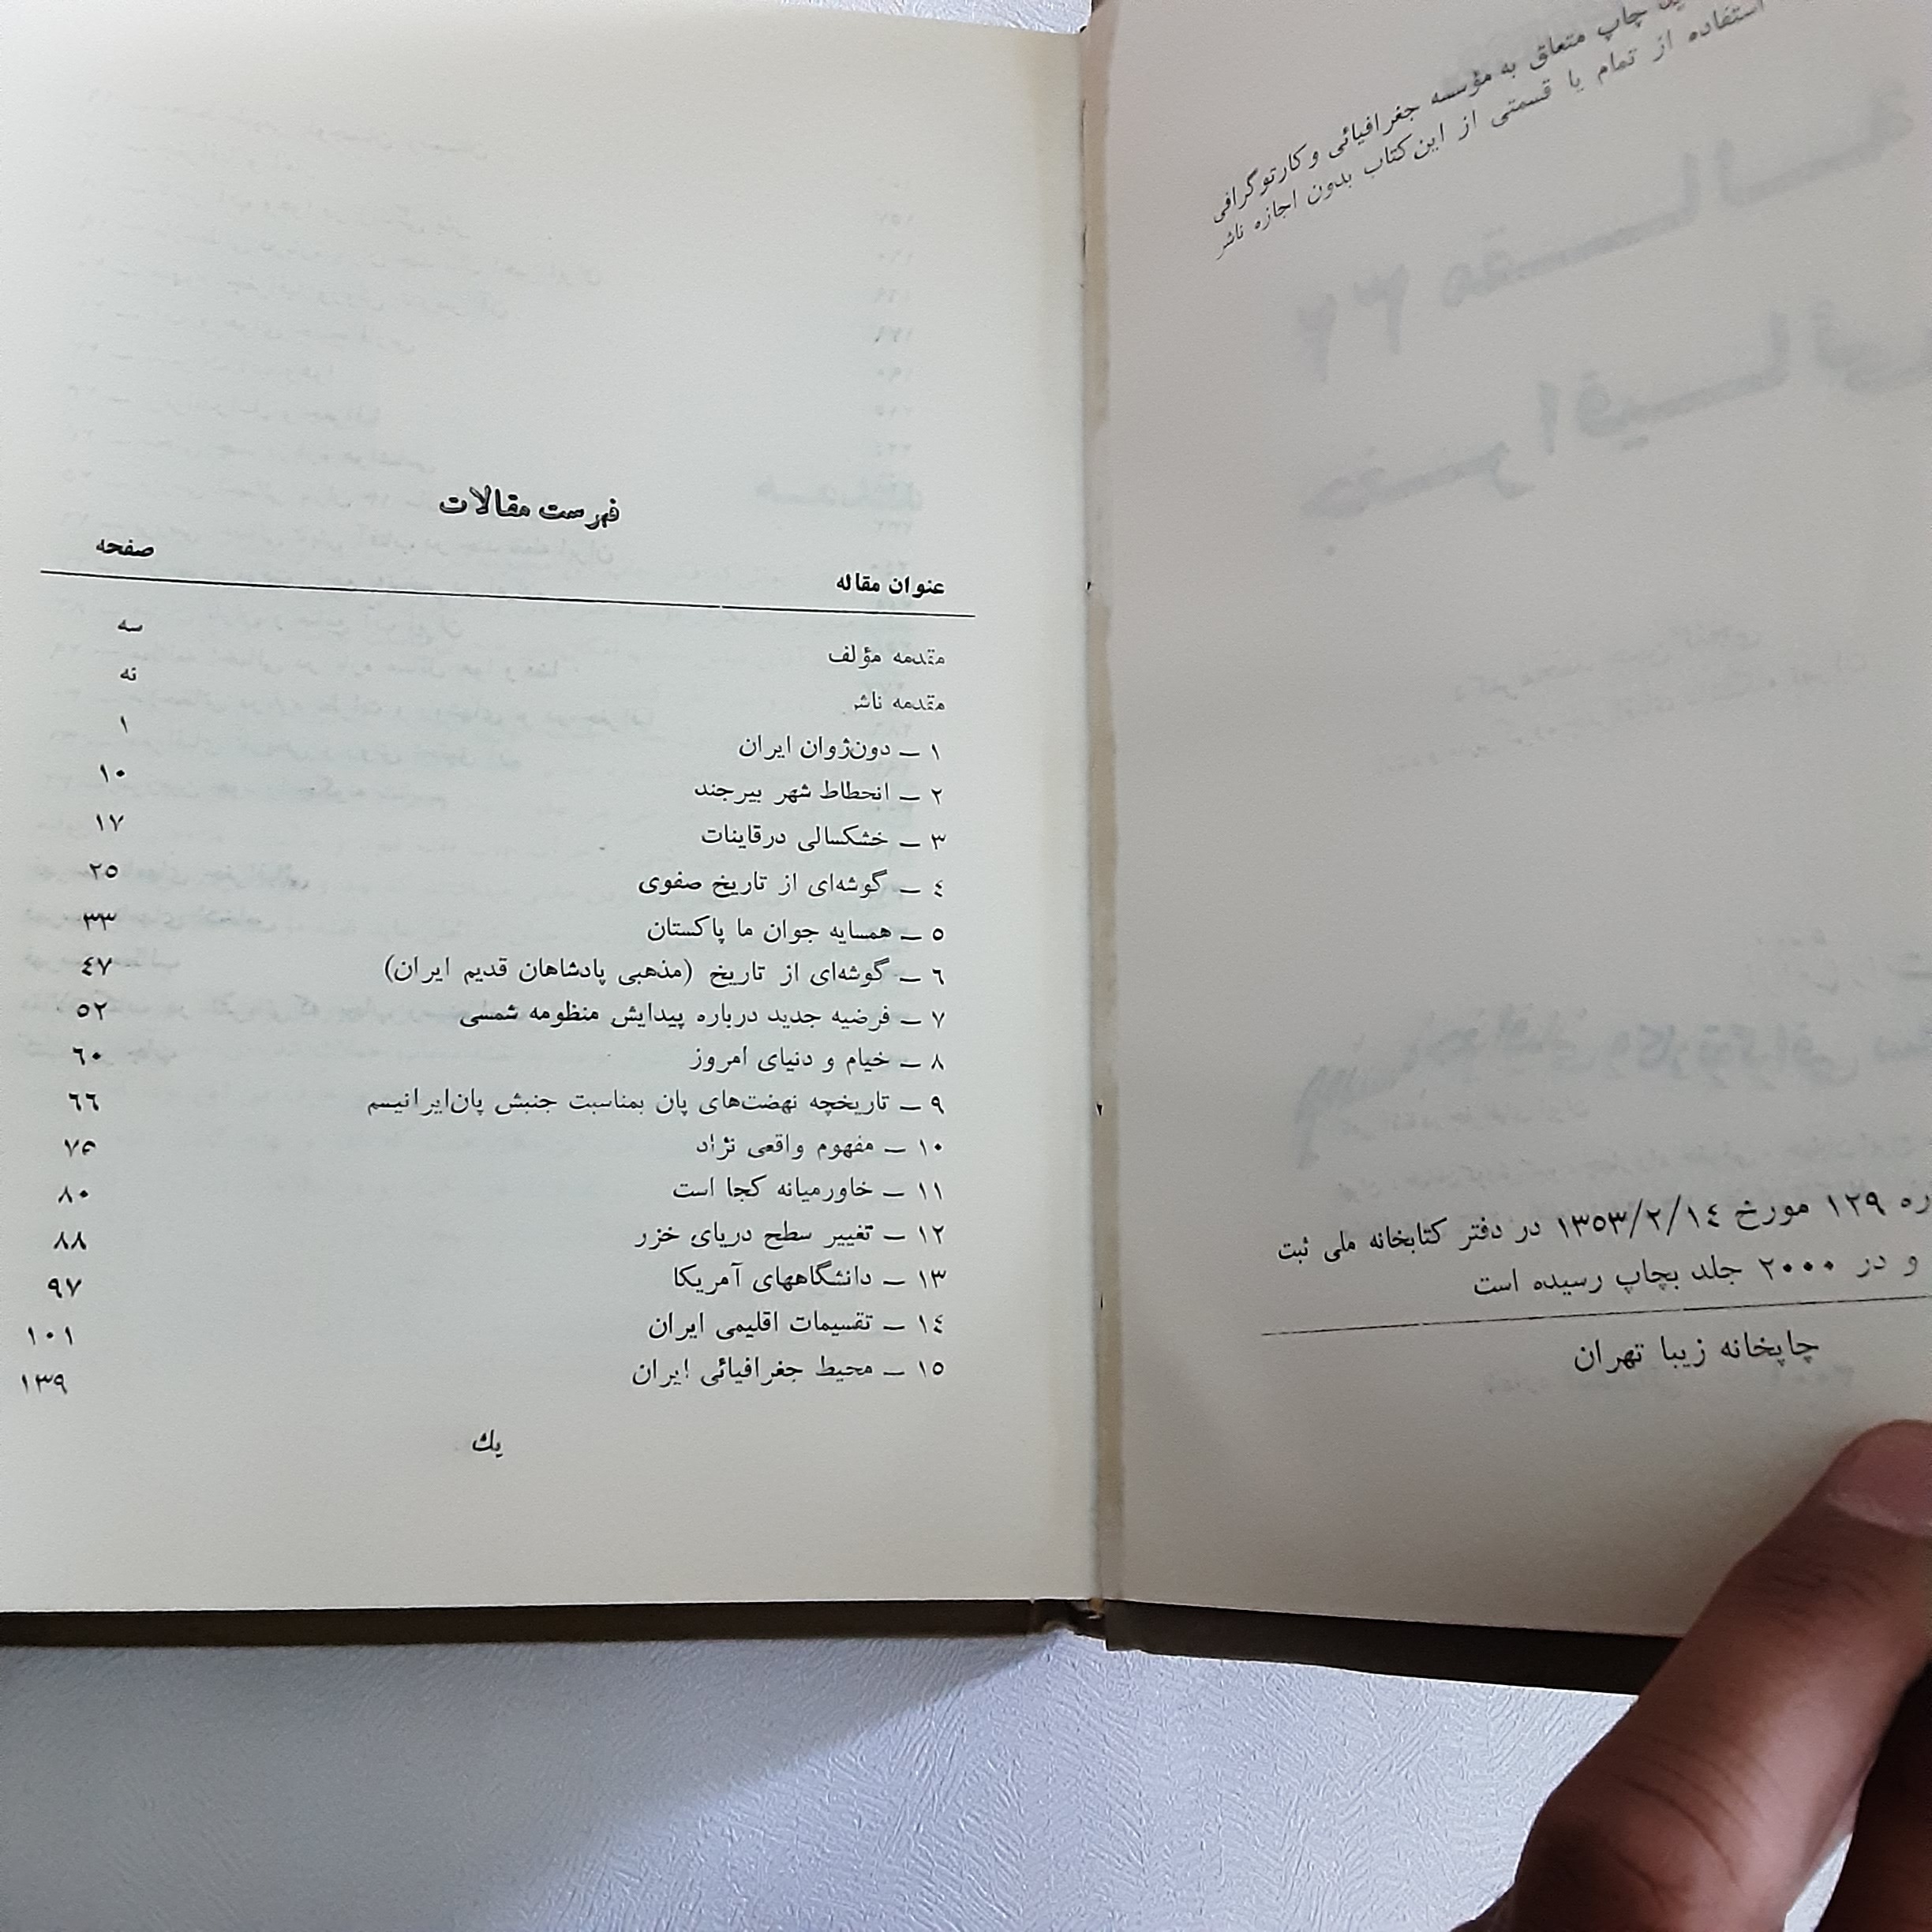 چاپ متعلق به مؤسسه جغرافیائی و کارتوگرافی
استفاده از تمام یا قسمتی از این کتاب بدون اجازه ناشر
۱۲۹ مورخ ۱۳۵۳/۲/۱٤ در دفتر کتابخانه ملی ثبت
و در ۲۰۰۰ جلد بچاپ رسیده است
چاپخانه زیبا تهران
فهرست مقالات
عنوان مقاله صفحه
مقدمه مؤلف سه
مقدمه ناشر نه
۱ ـ دون‌ژوان ایران ۱
۲ ـ انحطاط شهر بیرجند ۱۰
۳ ـ خشکسالی درقاینات ۱۷
٤ ـ گوشه‌ای از تاریخ صفوی ۲۵
۵ ـ همسایه جوان ما پاکستان ۳۳
٦ ـ گوشه‌ای از تاریخ (مذهبی پادشاهان قدیم ایران) ٤۷
۷ ـ فرضیه جدید درباره پیدایش منظومه شمسی ۵۲
۸ ـ خیام و دنیای امروز ٦۰
۹ ـ تاریخچه نهضت‌های پان بمناسبت جنبش پان‌ایرانیسم ٦٦
۱۰ ـ مفهوم واقعی نژاد
۱۱ ـ خاورمیانه کجا است ۸۰
۱۲ ـ تغییر سطح دریای خزر ۸۸
۱۳ ـ دانشگاههای آمریکا ۹۷
۱٤ ـ تقسیمات اقلیمی ایران ۱۰۱
۱۵ ـ محیط جغرافیائی ایران ۱۳۹
یك